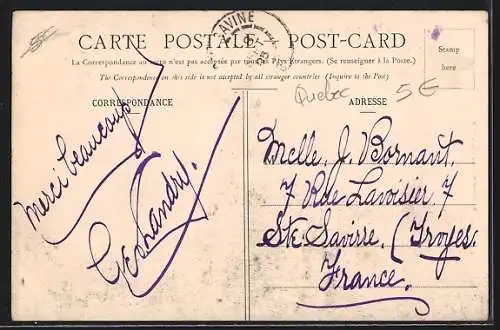 SAVINE
CARTE POSTALE POST-CARD
La Correspondance au verso n'est pas acceptée par tous les Pays Étrangers. (Se renseigner à la Poste.)
The Correspondence on this side is not accepted by all stranger countries (Inquire to the Post)
Stamp
here
CORRESPONDANCE
ADRESSE
Quebec
5 €
Merci beaucoup
Geo Landry.
Melle. J. Bornant.
7 Rue Lavoisier. 7
Ste. Savirre. (Troyes.
France.